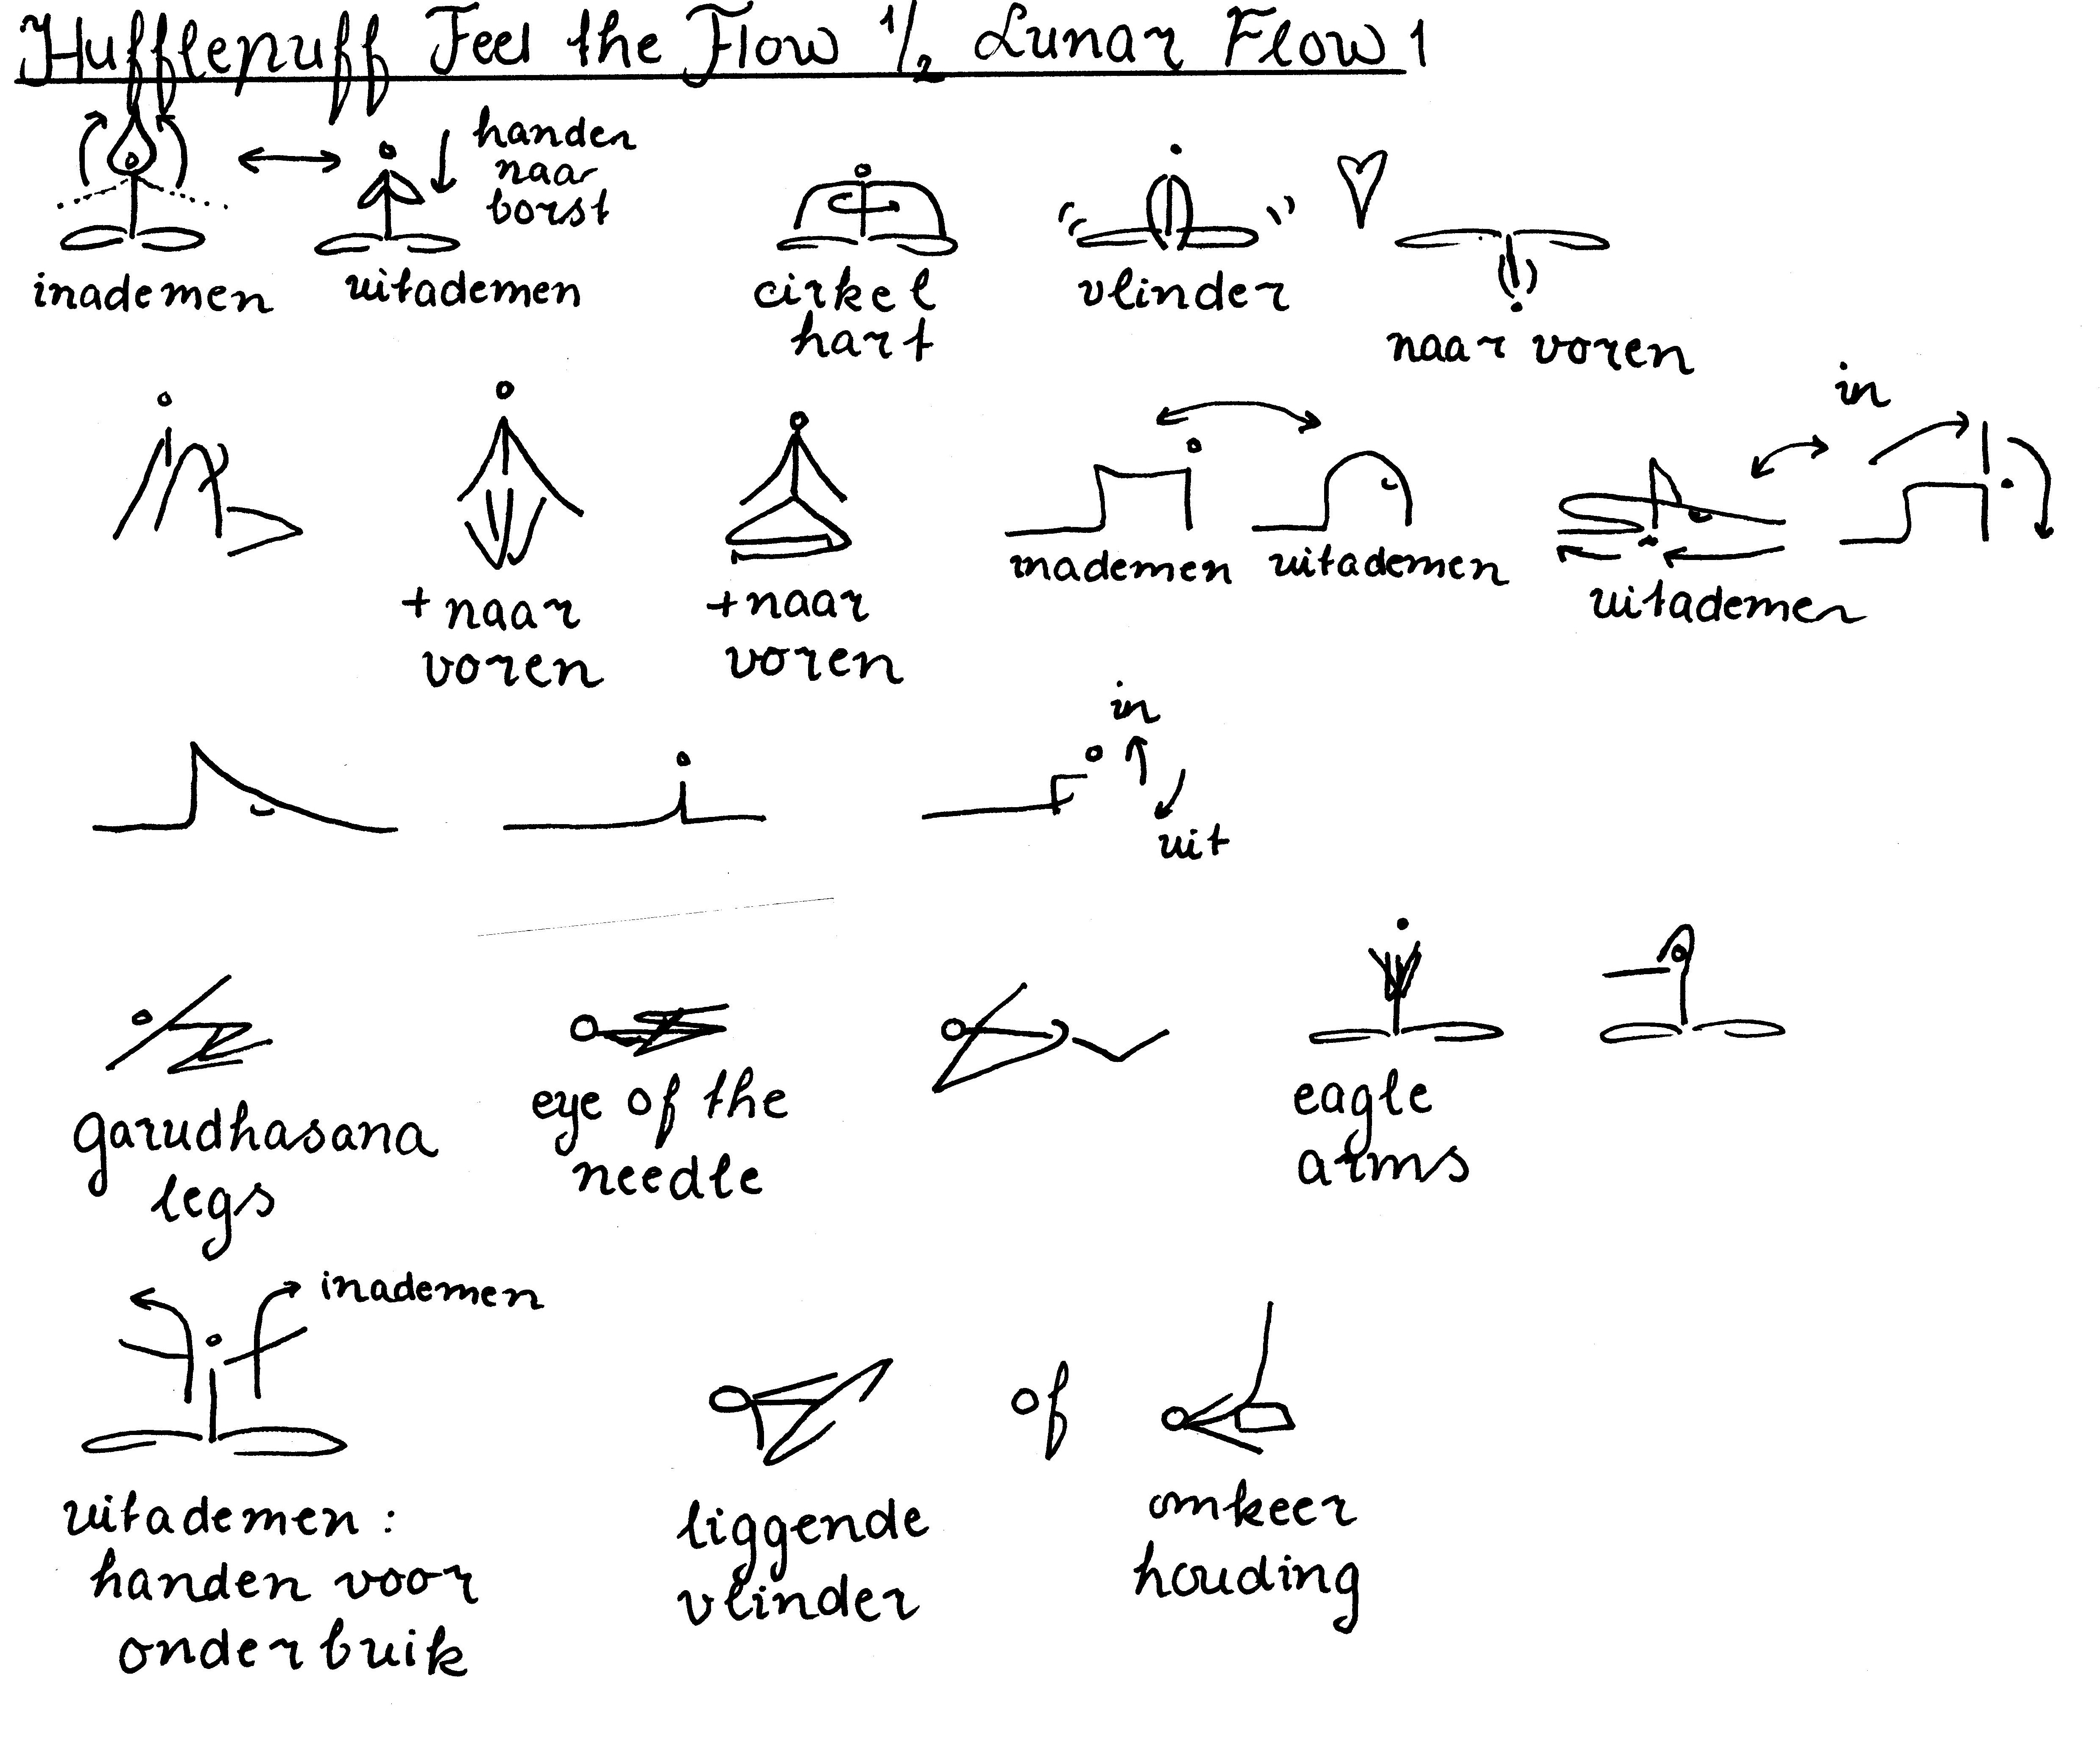 Hufflepuff Feel the Flow 1/2 Lunar Flow 1
handen
naar
borst
inademen
uitademen
cirkel
hart
vlinder
naar voren
+ naar
voren
+ naar
voren
inademen
uitademen
uitademen
in
in
uit
garudhasana
legs
eye of the
needle
eagle
arms
inademen
uitademen:
handen voor
onderbuik
liggende
vlinder
of
omkeer
houding